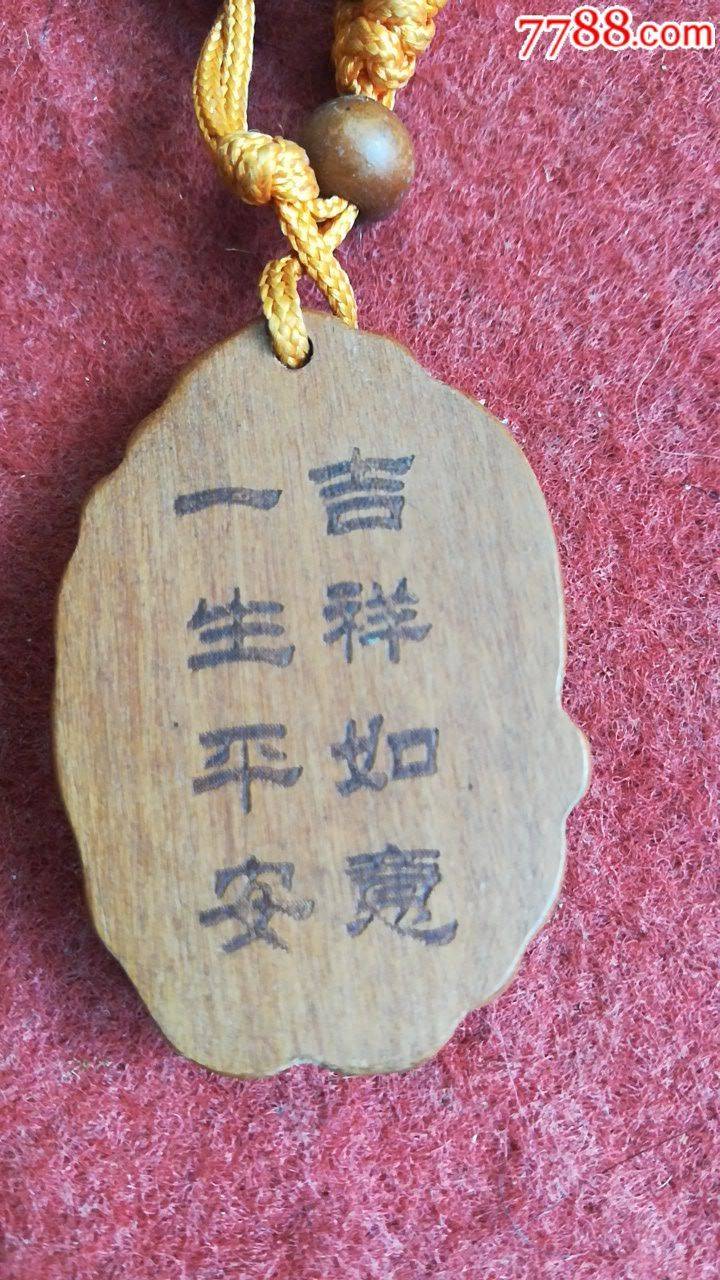 7788.com
吉祥如意
一生平安